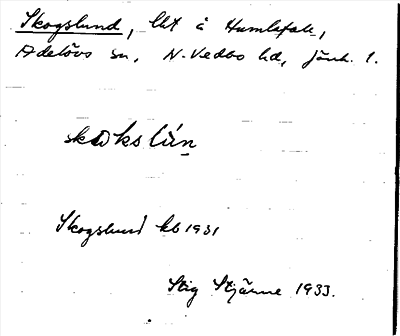 Skogslund, lht å Humlafall,
Adelövs sn, N. Vedbo hd, Jönk. l.
Skogslund kb 1931
Stig Stjärne 1933.